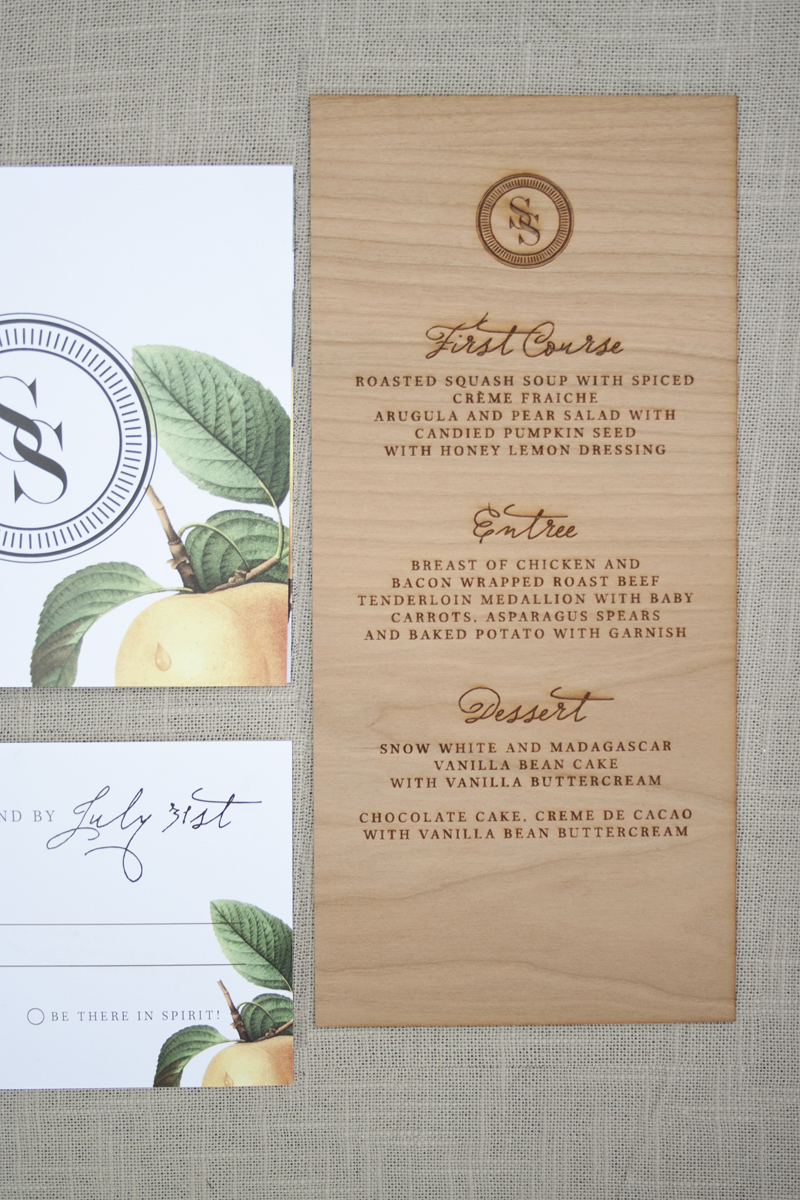 SS
First Course
ROASTED SQUASH SOUP WITH SPICED
CRÈME FRAICHE
ARUGULA AND PEAR SALAD WITH
CANDIED PUMPKIN SEED
WITH HONEY LEMON DRESSING
Entree
BREAST OF CHICKEN AND
BACON WRAPPED ROAST BEEF
TENDERLOIN MEDALLION WITH BABY
CARROTS, ASPARAGUS SPEARS
AND BAKED POTATO WITH GARNISH
Dessert
SNOW WHITE AND MADAGASCAR
VANILLA BEAN CAKE
WITH VANILLA BUTTERCREAM
CHOCOLATE CAKE, CREME DE CACAO
WITH VANILLA BEAN BUTTERCREAM
SS
ND BY July 31st
BE THERE IN SPIRIT!